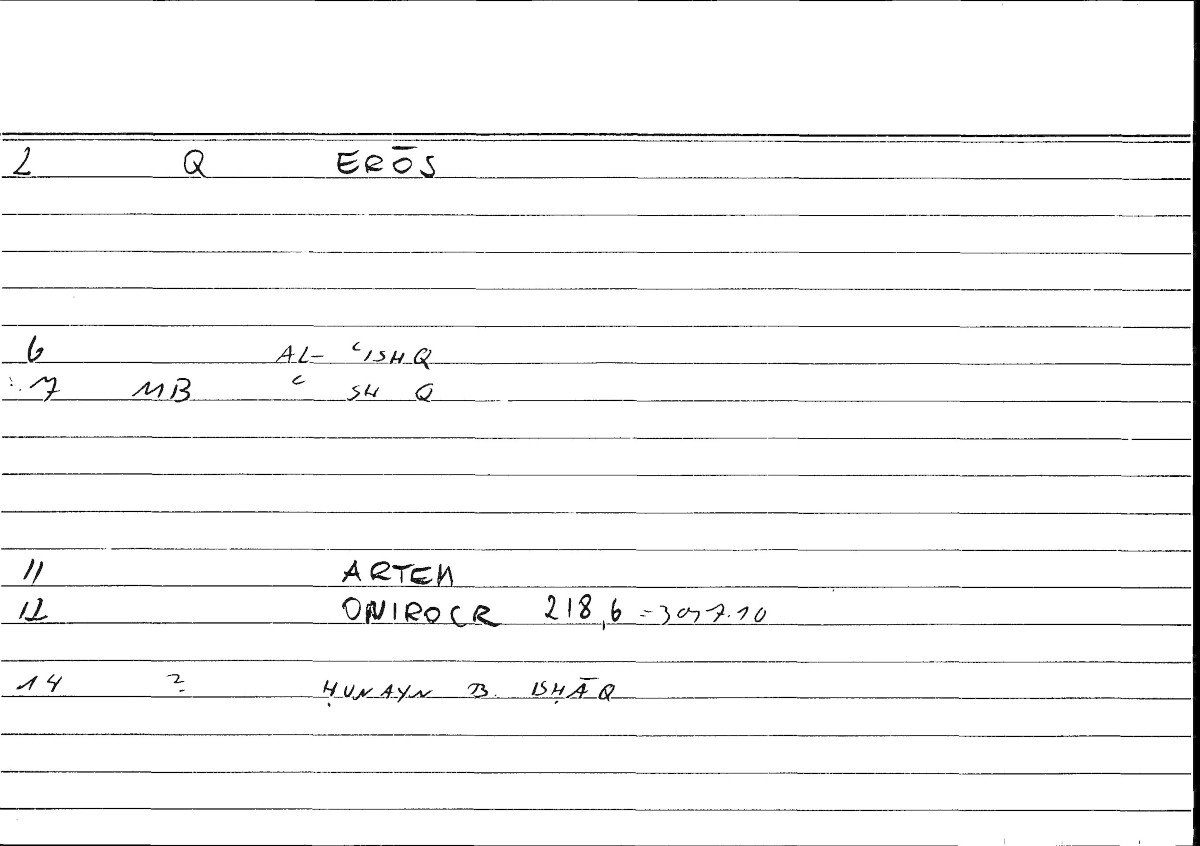 2 Q ERŌS
6 AL- ʿISHQ
7 MB ʿ SH Q
11 ARTEM
12 ONIROCR 218,6
14 ? ḤUNAYN B. ISḤĀQ